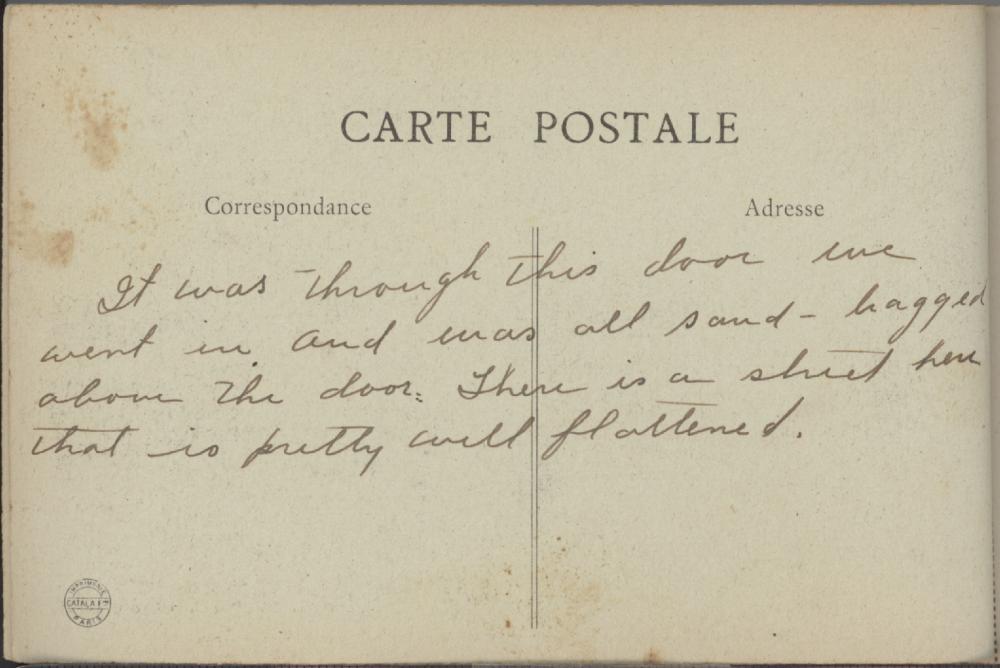 CARTE POSTALE
Correspondance
Adresse
It was through this door we
went in. and was all sand-bagged
above the door. There is a street here
that is pretty well flattened.
IMPRIMERIE
CATALA Fres
PARIS